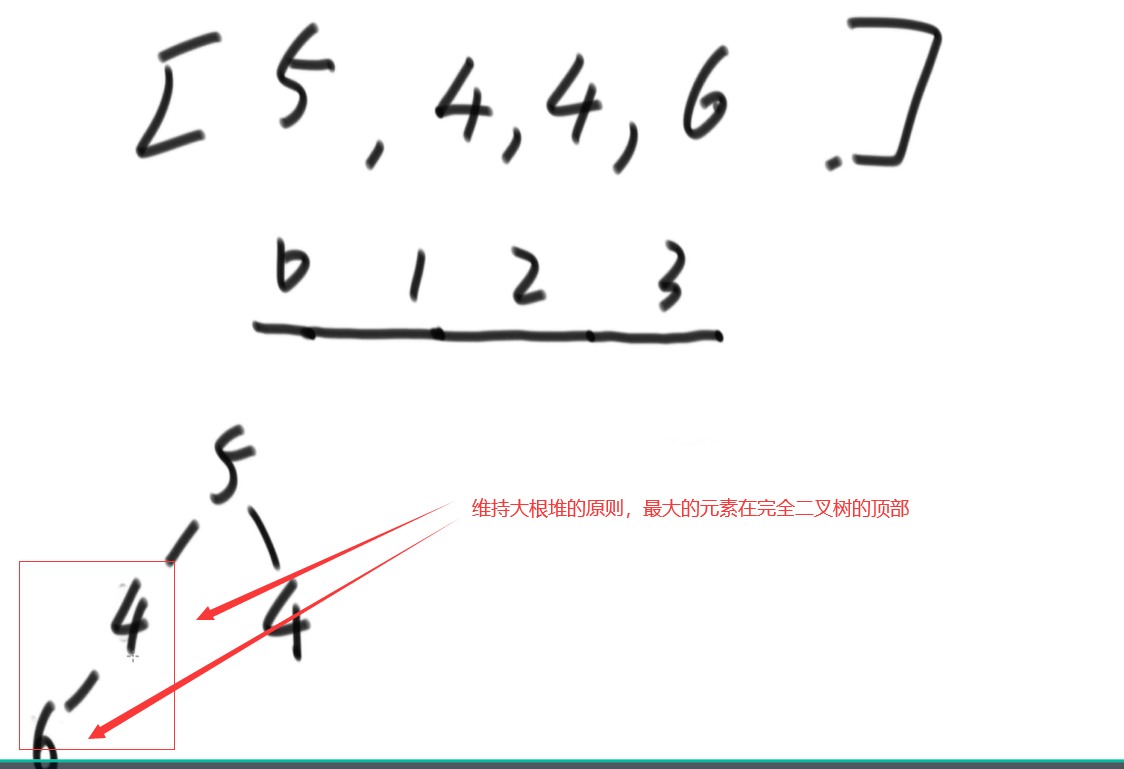 [ 5 , 4 , 4 , 6 . ]
0 1 2 3
5
维持大根堆的原则，最大的元素在完全二叉树的顶部
4 4
6